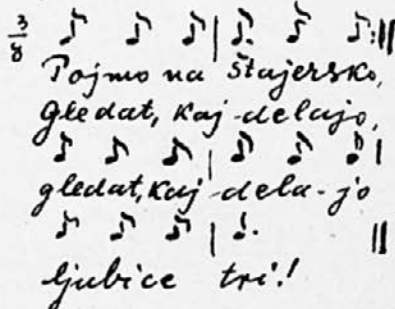 3/8
Pojmo na Štajersko,
Gledat, kaj delajo,
gledat, kaj dela-jo
ljubice tri!